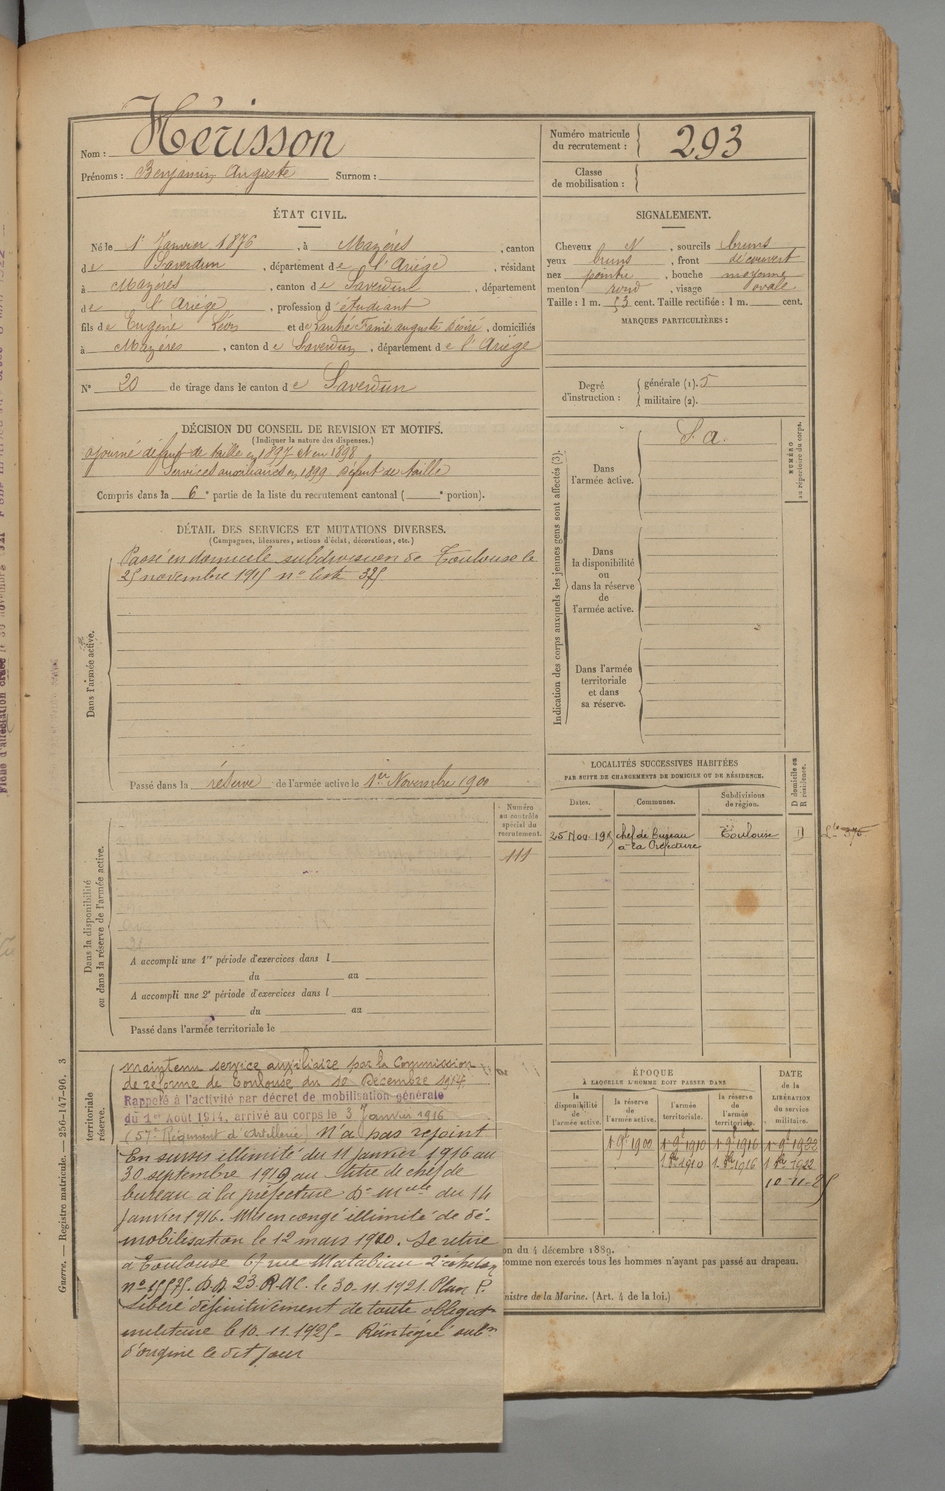 Nom : Hérisson
Prénoms : Benjamin Auguste Surnom :
Numéro matricule
du recrutement : 293
Classe
de mobilisation :
ÉTAT CIVIL.
Né le 1er Janvier 1876, à Mazères, canton
de Saverdun, département de l'Ariège, résidant
à Mazérés, canton de Saverdun, département
de l'Ariège, profession d'étudiant
fils de Eugène Léon et de Fanie auguste, domiciliés
à Mazères, canton de Saverdun, département de l'Ariège
N° 20 de tirage dans le canton de Saverdun
SIGNALEMENT.
Cheveux N, sourcils bruns
yeux bruns, front découvert
nez pointu, bouche moyenne
menton rond, visage ovale
Taille : 1 m. 53 cent. Taille rectifiée : 1 m. cent.
MARQUES PARTICULIÈRES :
Degré
d'instruction :
générale (1). 5
militaire (2).
DÉCISION DU CONSEIL DE REVISION ET MOTIFS.
(Indiquer la nature des dispenses.)
ajourné défaut de taille en 1897 et en 1898
Services auxiliaires en 1899 défaut de taille
Compris dans la 6e partie de la liste du recrutement cantonal ( e portion).
DÉTAIL DES SERVICES ET MUTATIONS DIVERSES.
(Campagnes, blessures, actions d'éclat, décorations, etc.)
Dans l'armée active.
Passé en domicile subdivision de Toulouse le
25 novembre 1915 n° liste 375
Passé dans la réserve de l'armée active le 1er Novembre 1900
Indication des corps auxquels les jeunes gens sont affectés (3).
NUMÉRO
au répertoire du corps.
Dans
l'armée active.
S. a.
Dans
la disponibilité
ou
dans la réserve
de
l'armée active.
Dans l'armée
territoriale
et dans
sa réserve.
LOCALITÉS SUCCESSIVES HABITÉES
PAR SUITE DE CHANGEMENTS DE DOMICILE OU DE RÉSIDENCE.
Dates. Communes. Subdivisions
de région.
D domicile ou
R résidence.
25 Nov. 1915 chef de Bureau Toulouse D
à la Préfecture
Numéro
au contrôle
spécial du
recrutement.
111
Dans la disponibilité
ou dans la réserve de l'armée active.
A accompli une 1re période d'exercices dans l
du au
A accompli une 2e période d'exercices dans l
du au
Passé dans l'armée territoriale le
territoriale
réserve.
maintenu service auxiliaire par la Commission
de réforme de Toulouse du 10 Décembre 1914
Rappelé à l'activité par décret de mobilisation générale
du 1er Août 1914, arrivé au corps le 3 Janvier 1916
(57e Régiment d'Artillerie) N'a pas rejoint
En sursis illimité du 11 Janvier 1916 au
30 septembre 1919 au titre de chef de
bureau à la préfecture du 14
Janvier 1916. Mis en congé illimité de dé-
mobilisation le 12 mars 19. Se retire
à Toulouse 67 rue Matabiau 2e échelon
n° 15575. 23. R.A.C. le 30.11.1921. Plan P.
Libéré définitivement de toute obligat
militaire le 10.11.1925 - Réintégré subon
d'origine le dit jour
ÉPOQUE
À LAQUELLE L'HOMME DOIT PASSER DANS
la
disponibilité
de
l'armée active.
la réserve
de
l'armée active.
l'armée
territoriale.
la réserve
de
l'armée
territoriale.
DATE
de la
LIBÉRATION
du service
militaire.
1er 9e 1900 1er 9e 1910 1er 9e 1916 1er 9e 1922
1910 1916 1922
10-11-25
on du 4 décembre 1889.
comme non exercés tous les hommes n'ayant pas passé au drapeau.
nistre de la Marine. (Art. 4 de la loi.)
Guerre. — Registre matricule. — 256-147-96. 3